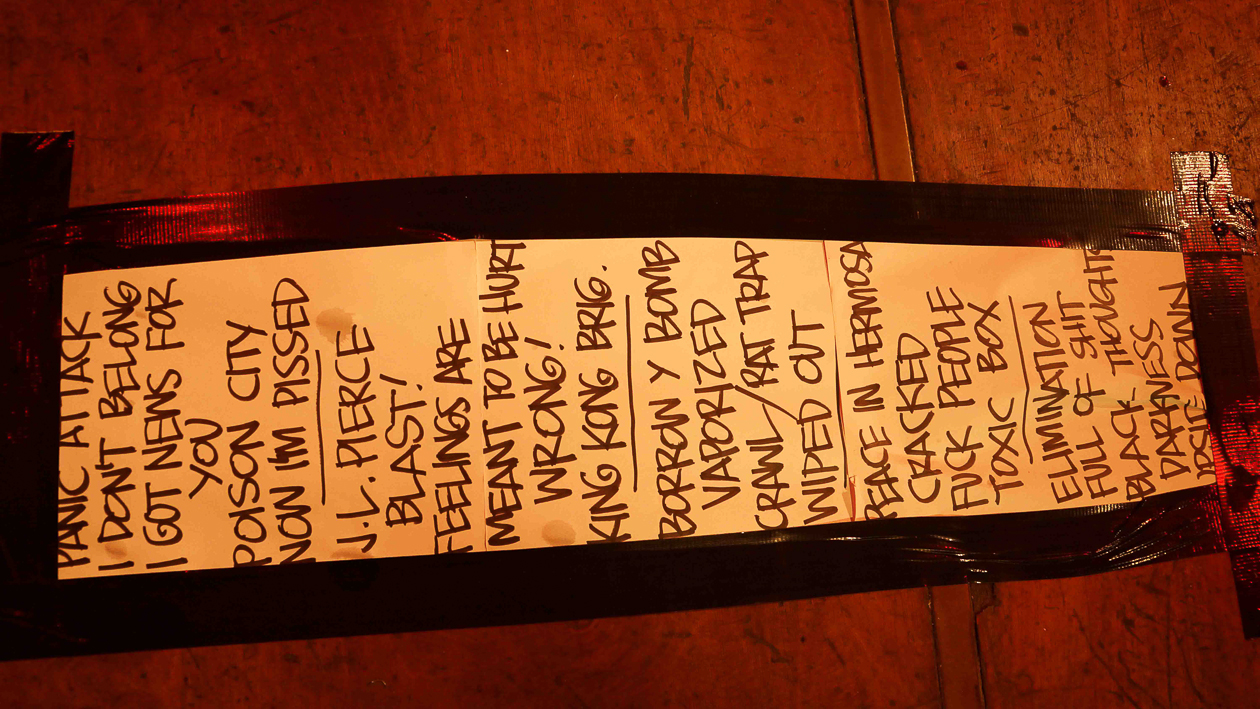 PANIC ATTACK
I DON'T BELONG
I GOT NEWS FOR
YOU
POISON CITY
NOW I'M PISSED
J.L. PIERCE
BLAST!
FEELINGS ARE
MEANT TO BE HURT
WRONG!
KING KONG BRIG.
BORRN Y BOMB
VAPORIZED
CRAWL/RAT TRAP
WIPED OUT
PEACE IN HERMOSA
CRACKED
FUCK PEOPLE
TOXIC BOX
ELIMINATION
FULL OF SHIT
BLACK THOUGHTS
DARKNESS
UPSIDE DOWN